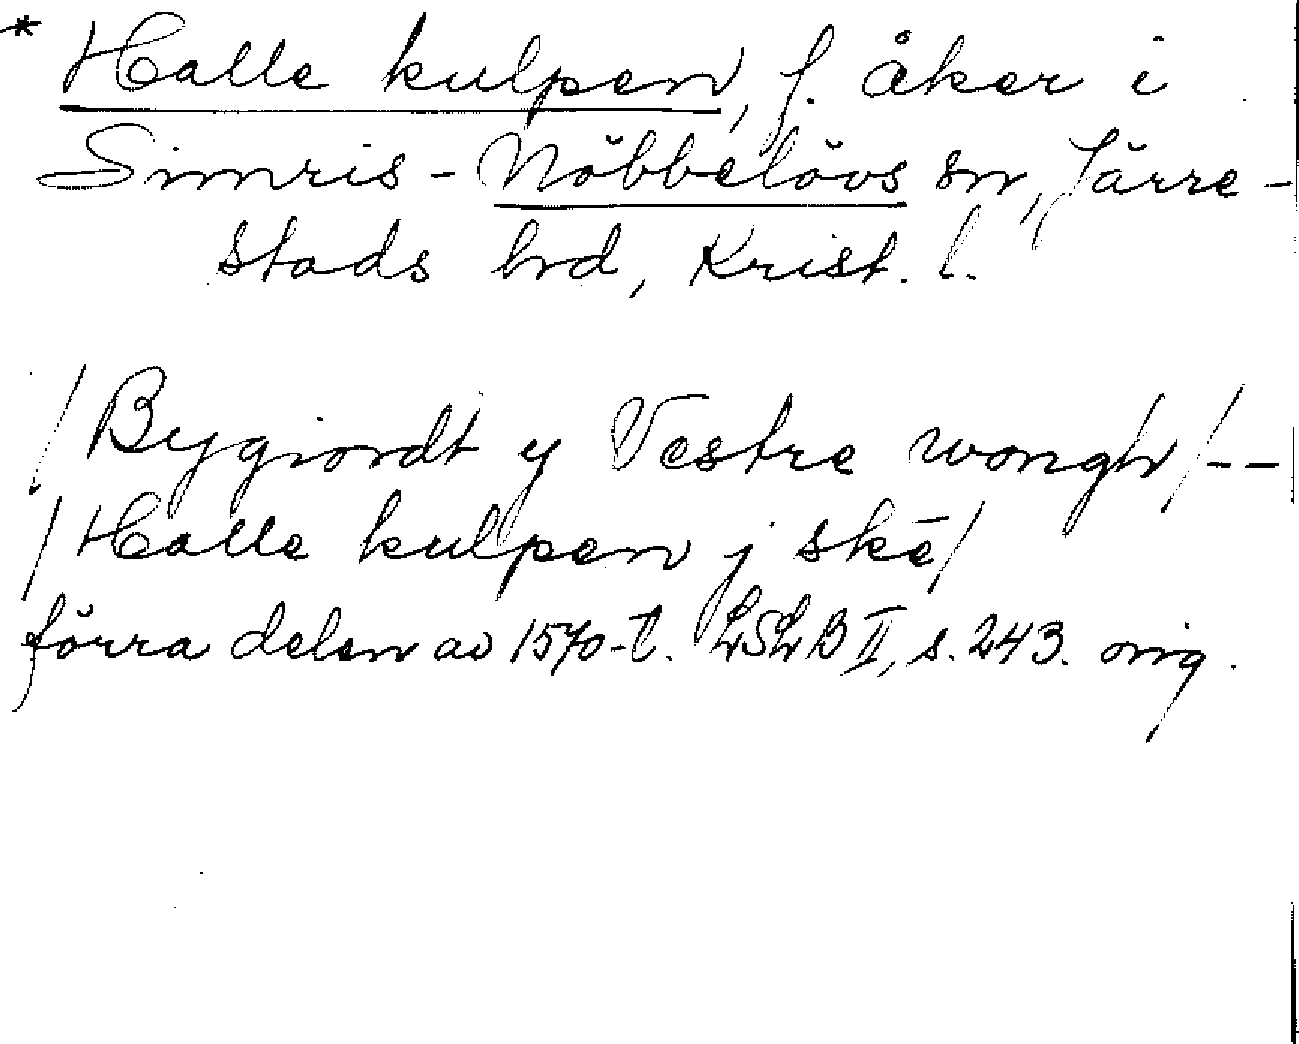 * Halle kulpen, f. åker i
Simris-Nöbbelövs sn, Järre-
stads hrd, Krist. l.
/Bygiordt y Vestre wongh/--
/Halle kulpen j skē/
förra delen av 1570-t. LSLB II, s. 243. orig.